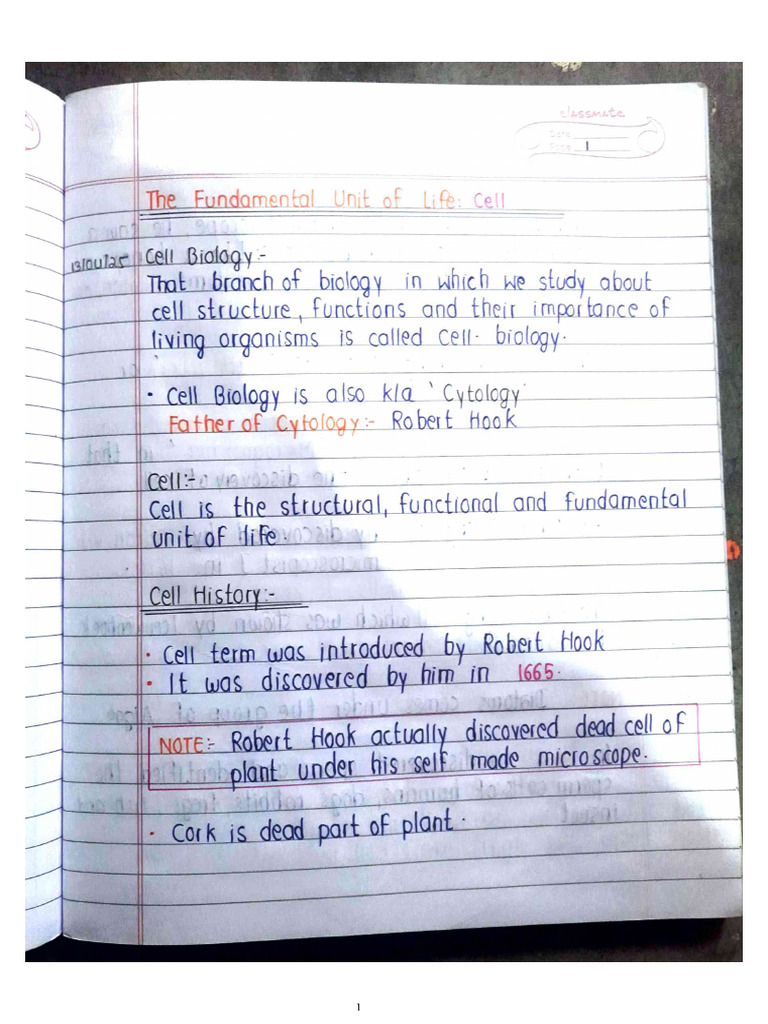 classmate
Date
Page 1
The Fundamental Unit of Life: Cell
13/04/25 Cell Biology:-
That branch of biology in which we study about
cell structure, functions and their importance of
living organisms is called cell biology.
• Cell Biology is also k/a 'Cytology'
Father of Cytology:- Robert Hook
Cell:-
Cell is the structural, functional and fundamental
unit of life.
Cell History:-
• Cell term was introduced by Robert Hook
• It was discovered by him in 1665.
NOTE:- Robert Hook actually discovered dead cell of
plant under his self made microscope.
• Cork is dead part of plant.
1